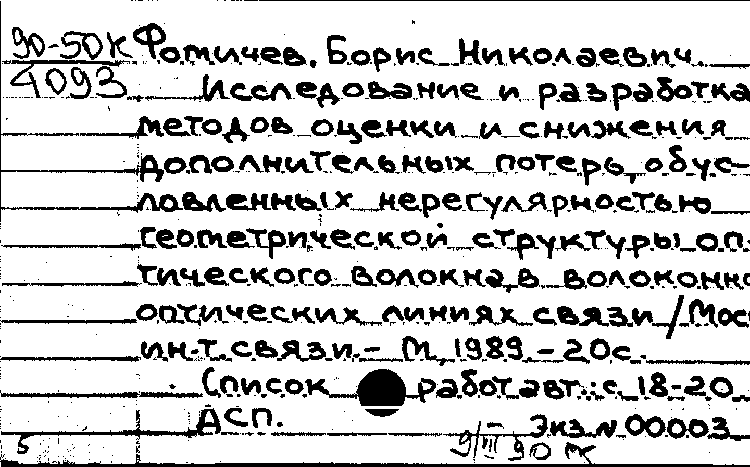 90-50К
4093
Фомичев, Борис Николаевич
Исследование и разработка
методов оценки и снижения
дополнительных потерь, обус-
ловленных нерегулярностью
геометрической структуры оп-
тического волокна, в волоконно
оптических линиях связи / Мос
ин-т связи. - М, 1989. - 20с.
Список работ авт.: с. 18-20
ДСП.
Экз. N 00003
5
9/III 90